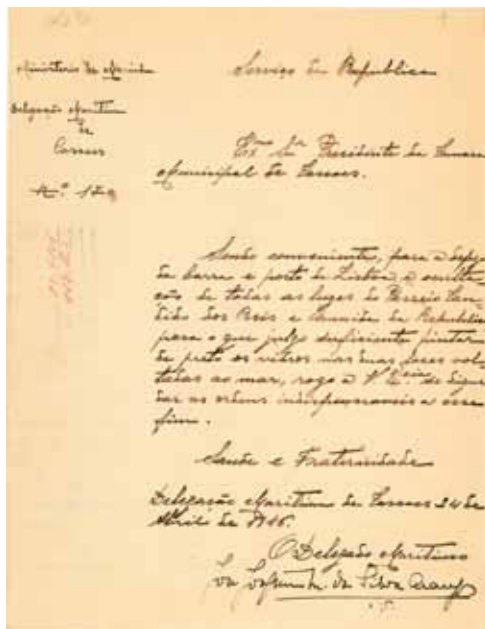 Ministerio da Marinha
Serviço da Republica
Delegação Maritima
de
Cascaes
N.º
Exmo Snr Presidente da Camara
Municipal de Cascaes.
Sendo conveniente, para a defeza
da barra e porto de Lisboa, a occulta-
ção de todas as luzes do Passeio Can-
dido dos Reis e Avenida da Republica
para o que julgo sufficiente pintar
de preto os vidros nas duas faces vol-
tadas ao mar, rogo a V. Excia se digne
dar as ordens indispensaveis a esse
fim.
Saude e Fraternidade
Delegação Maritima de Cascaes 24 de
Abril de 1916.
O Delegado Maritimo
da Silva Araujo